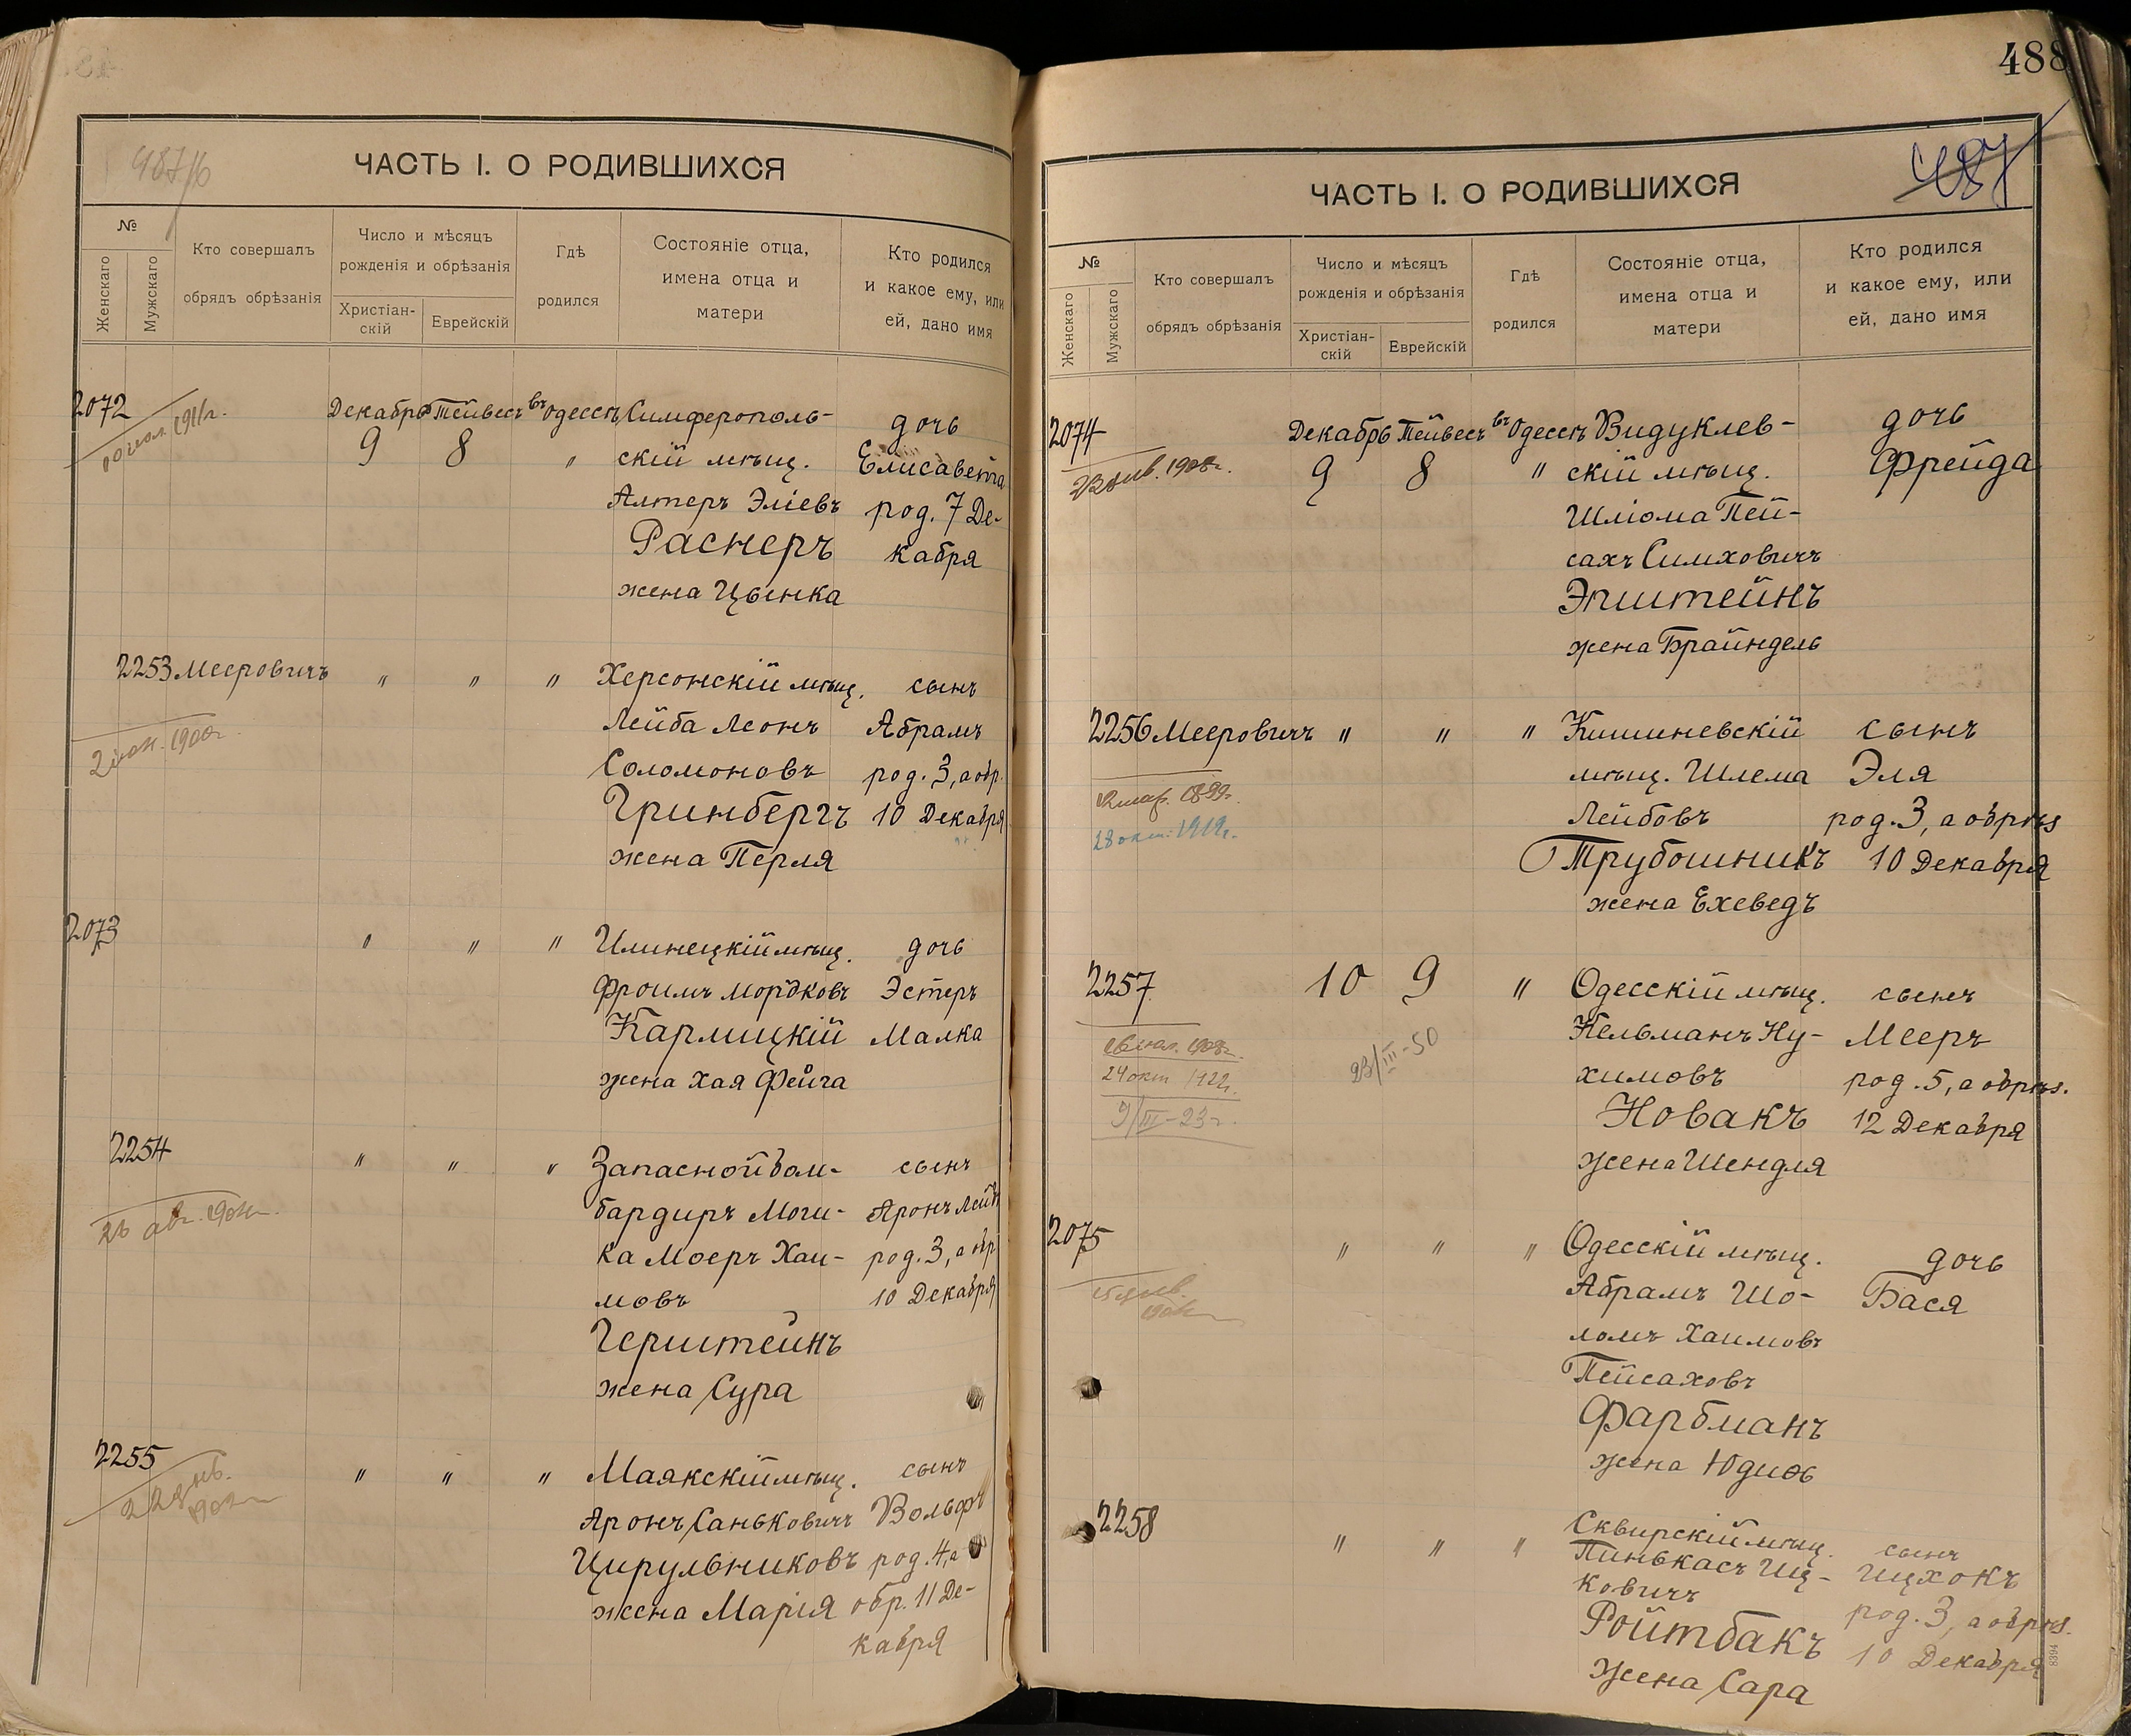 487/б
ЧАСТЬ I. О РОДИВШИХСЯ
№
Женскаго
Мужскаго
Кто совершалъ
обрядъ обрѣзанія
Число и мѣсяцъ
рожденія и обрѣзанія
Христіан-
скій
Еврейскій
Гдѣ
родился
Состояніе отца,
имена отца и
матери
Кто родился
и какое ему, или
ей, дано имя
2072 Декабрь Тейвесъ въ Одессѣ Симферополь- дочь
1911г.
9 8 " скій мѣщ. Елисавета
Алтеръ Эліевъ род. 7 Де-
Раснеръ кабря
жена Цвынка
2253 Мееровичъ " " " Херсонскій мѣщ. сынъ
1900г.
Лейба Леонъ Абрамъ
Соломоновъ род. 3, а обр.
Гринбергъ 10 Декабря
жена Перля
2073 " " " Илинецкій мѣщ. дочь
Фроимъ Мордковъ Эстеръ
Кармицкій Малка
жена Хая Фейга
2254 " " " Запасной бом- сынъ
26 авг.
бардиръ Моги- Аронъ Лейб
ка Моеръ Хаи- род. 3, а обр
мовъ 10 Декабря
Герштейнъ
жена Сура
2255 " " " Маякскій мѣщ. сынъ
Аронъ Саньковичъ Вольфъ
Цирульниковъ род. 4, а
жена Марія обр. 11 Де-
кабря
488
487
ЧАСТЬ I. О РОДИВШИХСЯ
№
Женскаго
Мужскаго
Кто совершалъ
обрядъ обрѣзанія
Число и мѣсяцъ
рожденія и обрѣзанія
Христіан-
скій
Еврейскій
Гдѣ
родился
Состояніе отца,
имена отца и
матери
Кто родился
и какое ему, или
ей, дано имя
2074 Декабрь Тейвесъ въ Одессѣ Видуклев- дочь
1908г.
9 8 " скій мѣщ. Фрейда
Шліома Пей-
сахъ Симховичъ
Эпштейнъ
жена Брайндель
2256 Мееровичъ " " " Кишиневскій сынъ
мѣщ. Шлема Эля
12 мар. 1899г.
28 окт. 1919г.
Лейбовъ род. 3, а обрѣз
Трубошникъ 10 Декабря
жена Ехеведъ
2257 10 9 " Одесскій мѣщ. сынъ
1908г.
24 окт 1922г.
9/III-23г.
23/III-50
Кельманъ Ну- Мееръ
химовъ род. 5, а обрѣз.
Новакъ 12 Декабря
жена Шендля
2075 " " " Одесскій мѣщ. дочь
Абрамъ Шо- Бася
ломъ Хаимовъ
Пейсаховъ
Фарбманъ
жена Юдиѳь
2258 " " " Сквирскій мѣщ. сынъ
Пинькасъ Иц- Ицхокъ
ковичъ
род. 3, а обрѣз.
Ройтбакъ 10 Декабря
жена Сара
8394